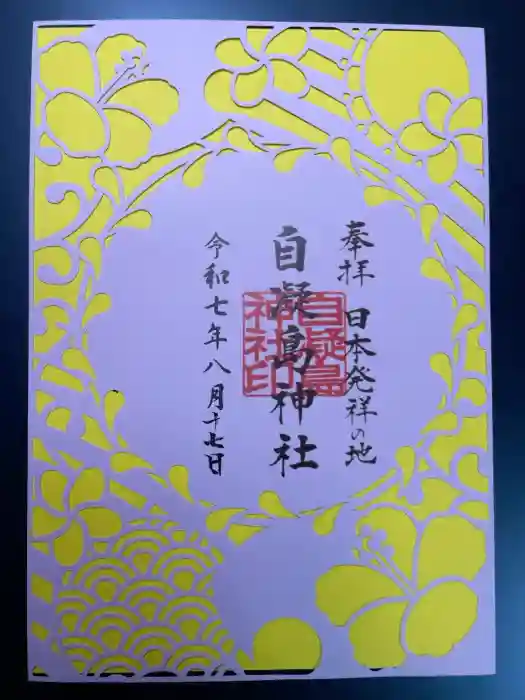 奉拝 日本発祥の地
自凝島神社
自凝島
神社印
令和七年八月十七日